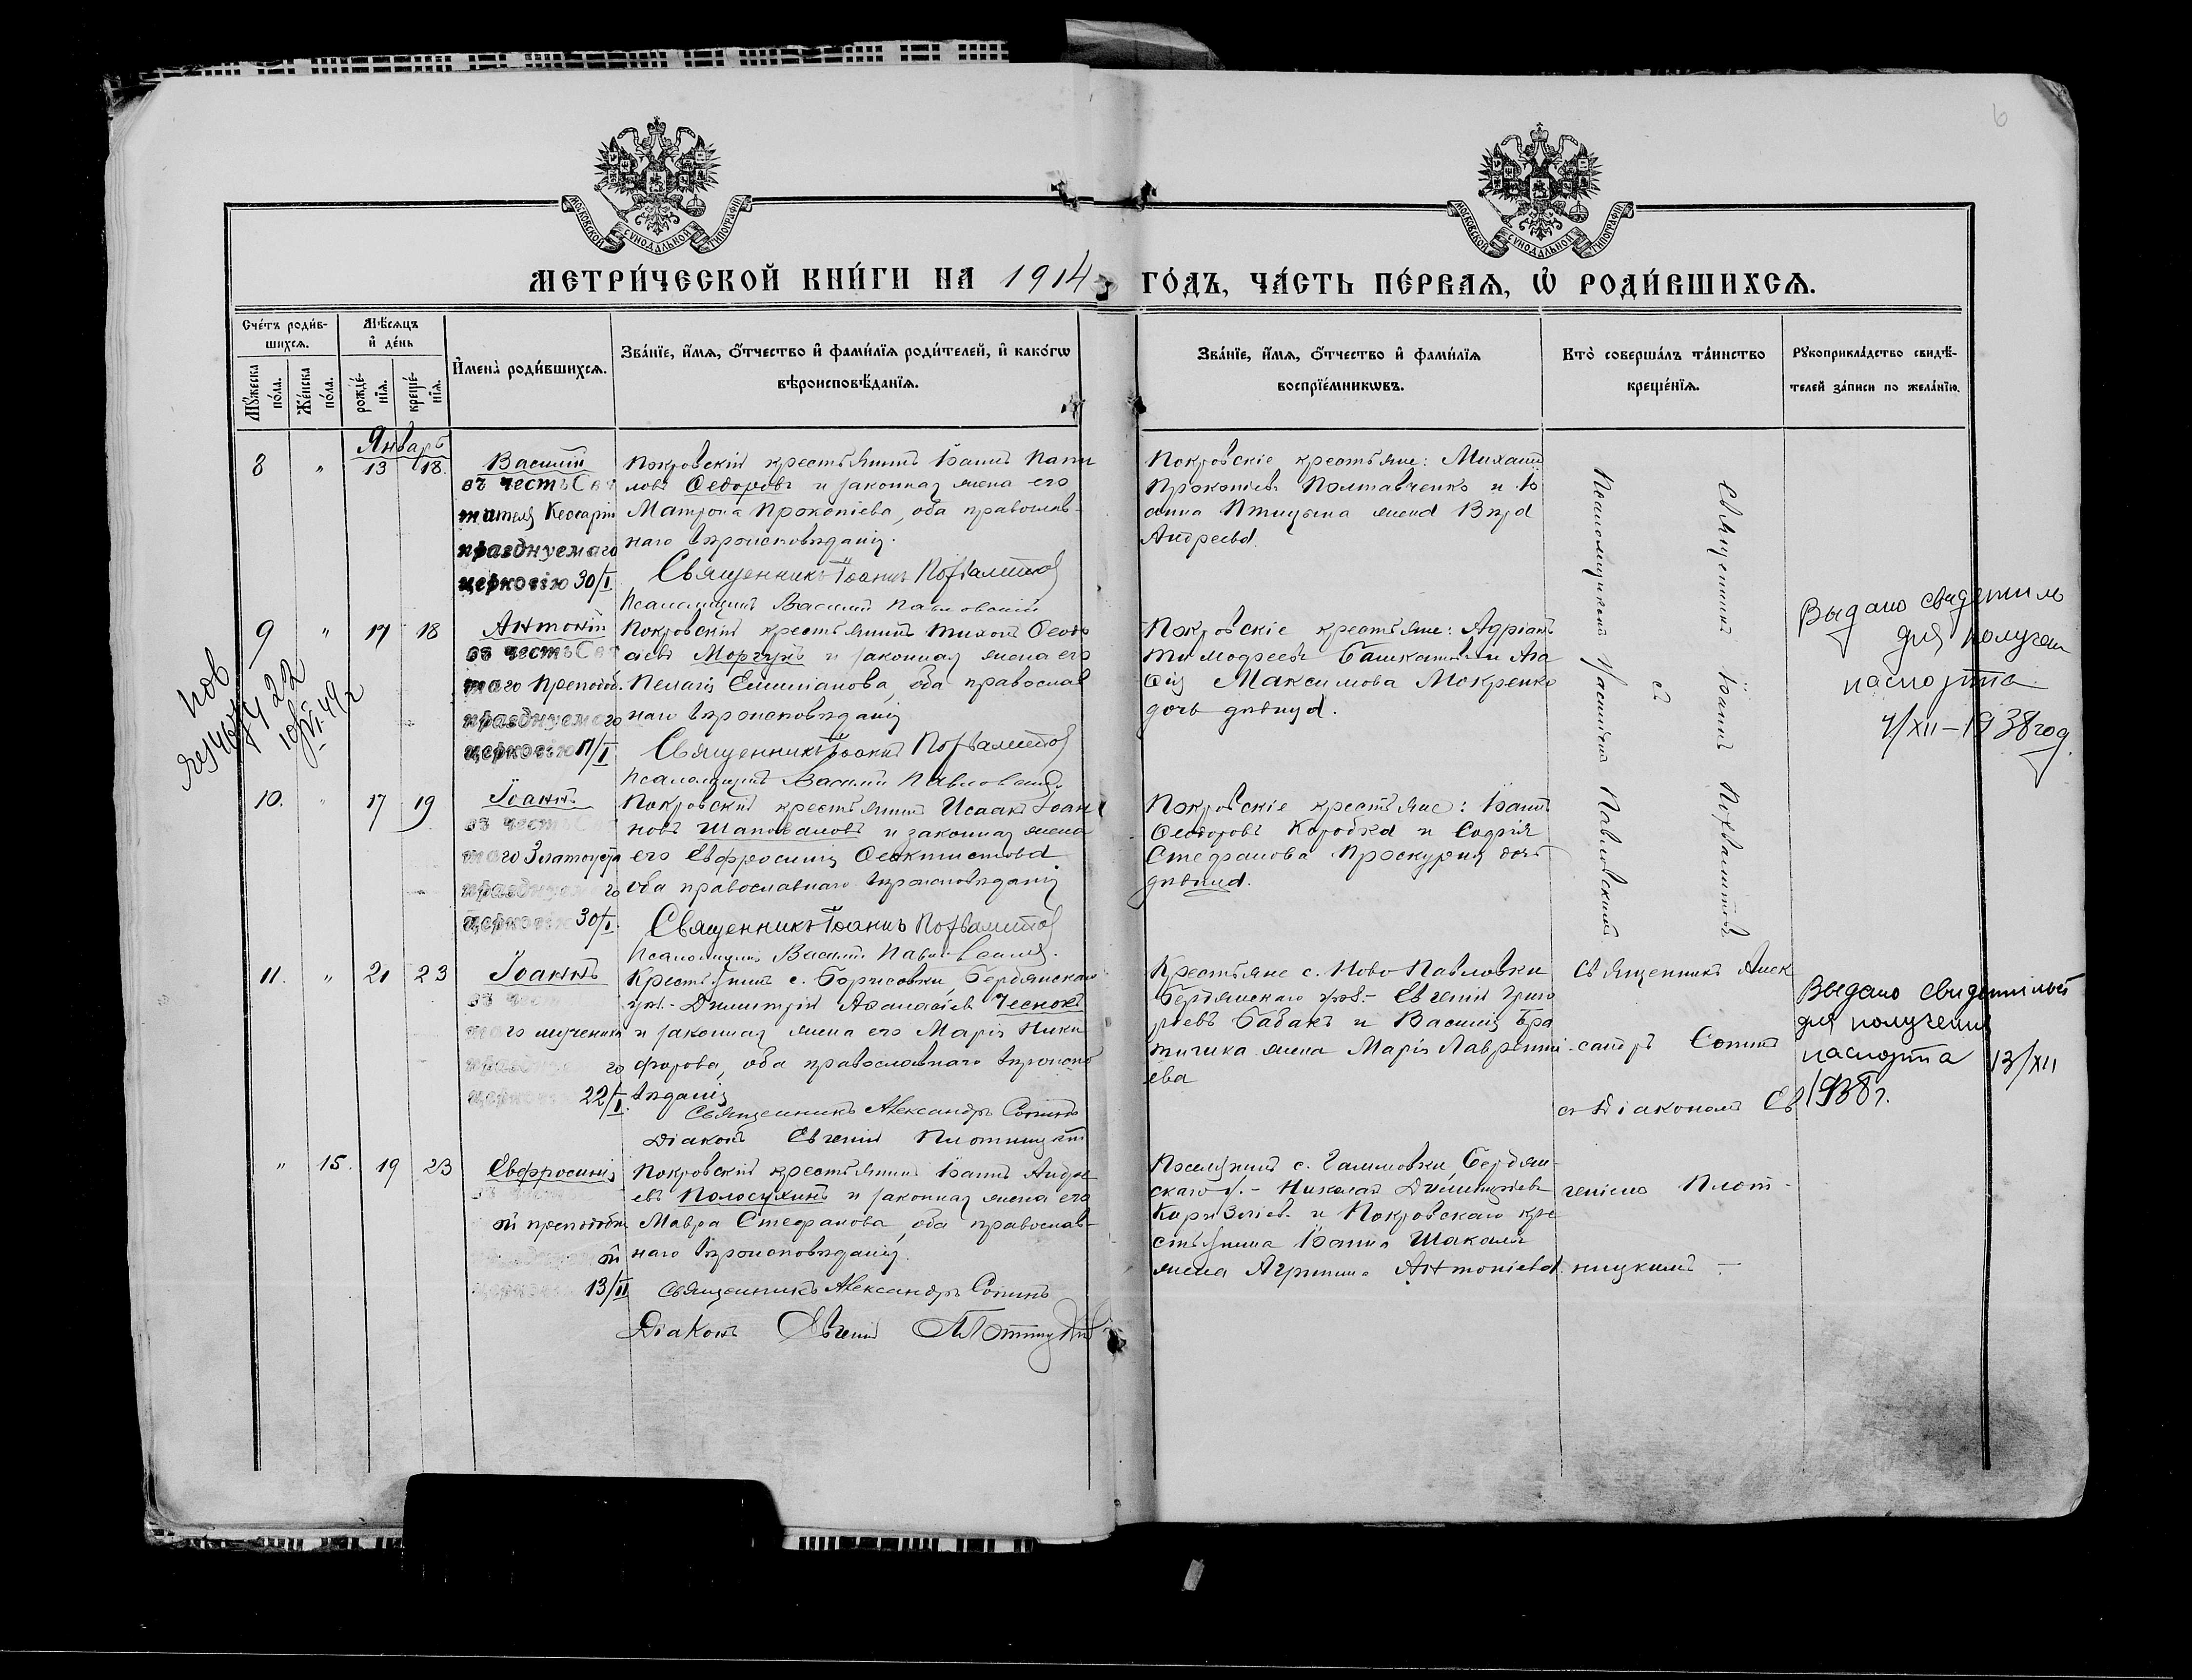 6
МОСКОВСКОЙ СУНОДАЛЬНОЙ ТИПОГРАФІИ
МОСКОВСКОЙ СУНОДАЛЬНОЙ ТИПОГРАФІИ
МЕТРИ́ЧЕСКОЙ КНИ́ГИ НА 1914 ГО́ДЪ, ЧА́СТЬ ПЕ́РВАѦ, Ѡ҆ РОДИ́ВШИХСѦ.
Сче́тъ роди́в-
шихсѧ.
Мꙋжеска по́ла.
Же́нска по́ла.
Мѣ́сѧцъ
и҆ де́нь
рожде́-
нїѧ.
креще́-
нїѧ.
И҆мена̀ роди́вшихсѧ.
Зва́нїе, и҆́мѧ, ѻ҆́тчество и҆ фами́лїѧ роди́телей, и҆ како́гѡ
вѣроисповѣ́данїѧ.
Зва́нїе, и҆́мѧ, ѻ҆́тчество и҆ фами́лїѧ
воспрїе́мникѡвъ.
Кто̀ соверша́лъ та́инство
креще́нїѧ.
Рꙋкоприкла́дство свидѣ́-
телей за́писи по жела́нїю.
Январь
8 " 13 18.
Василій
въ честь Свя
тителя Кесарій
празднуемаго
церковію 30/I
Покровскій крестьянинъ Іоаннъ
ловъ Ѳедоровъ и законная жена его
Матрона Прокопіева, оба православ-
наго вѣроисповѣданія.
Священникъ Іоаннъ Похвалитовъ
Псаломщикъ Василій Павловскій
Покровскіе крестьяне: Михаилъ
Прокопіевъ Полтавченко и Іо
анна Птицына жена Вѣра
Андреева.
Священникъ Іоаннъ Похвалитовъ
съ
Псаломщикомъ Василіемъ Павловскимъ.
9 " 17 18
Антоній
въ честь Свя
таго Преподоб.
празднуемаго
церковію 17/I
Покровскій крестьянинъ Тихонъ Ѳеодо
сіевъ Моргунъ и законная жена его
Пелагія Емиліанова, оба православ
наго вѣроисповѣданія
Священникъ Іоаннъ Похвалитовъ
Псаломщикъ Василій Павловскій
Покровскіе крестьяне: Адріанъ
Тимофеевъ и Ага
ѳія Максимова Мокренко
дочь дѣвица.
Выдано свидетель
для получен
паспорта
4/XII – 1938 год.
10. " 17 19
Іоаннъ
въ честь Свя
таго Златоуста
празднуемаго
церковію 30/I.
Покровскій крестьянинъ Исаакъ Іоан
новъ Шаповаловъ и законная жена
его Евфросинія Ѳеоктистова
оба православнаго вѣроисповѣданія
Священникъ Іоаннъ Похвалитовъ
Псаломщикъ Василій Павловскій.
Покровскіе крестьяне: Іоаннъ
Ѳеодоровъ Коробка и Софія
Стефанова Проскурня дочь
дѣвица.
11. " 21 23
Іоаннъ
въ честь
таго мученика
го
22/I.
Крестьянинъ с. Борисовки, Бердянскаго
уѣз.- Димитрій Аѳанасіевъ Чеснокъ
и законная жена его Марія Ники
форова, оба православнаго вѣроиспо
вѣданія
Священникъ Александръ Сопинъ
Діаконъ Евгеній Плотницкій
Крестьяне с. Ново Павловки
Бердянскаго уѣз.- Евгеній Григо
рьевъ Бабакъ и Василія Бра
тичка жена Марія Лаврентi
ева
Священникъ Алек
сандръ Сопинъ
съ Діакономъ Ев
геніемъ Плот-
ницкимъ –
Выдано свидетельст
для получения
паспорта 13/XII
1938 г.
" 15. 19 23
Евфросинія
ой преподобн
ой
13/II
Покровскій крестьянинъ Іоаннъ Андре
евъ Полосухинъ и законная жена его
Мавра Стефанова, оба православ-
наго вѣроисповѣданія.
Священникъ Александръ Сопинъ
Діаконъ Евгеній Плотницкій
с. Бердян-
скаго у.- Николай Димитріевъ
и Покровскаго кре
стьянина Іоанна Шакалъ
жена Агрипина Антоніева.